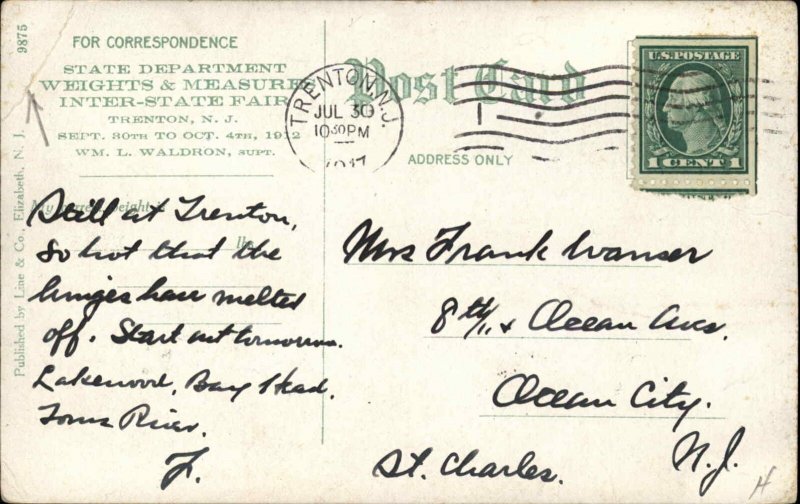 9875
FOR CORRESPONDENCE
STATE DEPARTMENT
WEIGHTS & MEASURE
INTER-STATE FAIR
TRENTON, N. J.
SEPT. 30TH TO OCT. 4TH, 1912
WM. L. WALDRON, SUPT.
Published by Line & Co., Elizabeth, N. J.
Post Card
ADDRESS ONLY
TRENTON, N.J.
JUL 30
10 30 PM
1917
U.S. POSTAGE
1 CENT 1
My weight is
lbs
Still at Trenton,
So hot that the
hinges have melted
off. Start out tomorrow.
Lakewood, Bay Head.
Toms River.
F.
Mrs Frank Wanser
8th & Ocean Aves.
Ocean City.
N.J.
St. Charles.
H